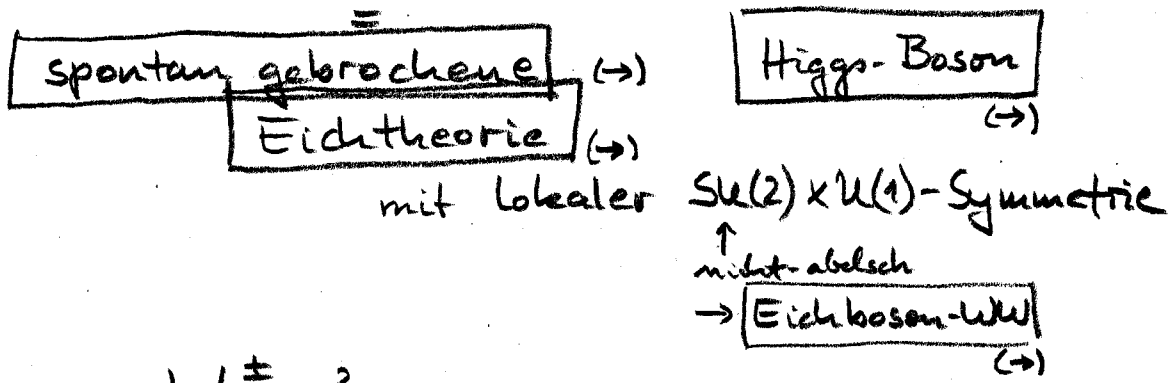 =
spontan gebrochene (→) Higgs-Boson
(→)
Eichtheorie (→)
mit lokaler SU(2)×U(1)-Symmetrie
↑
nicht-abelsch
→ Eichboson-WW
(→)